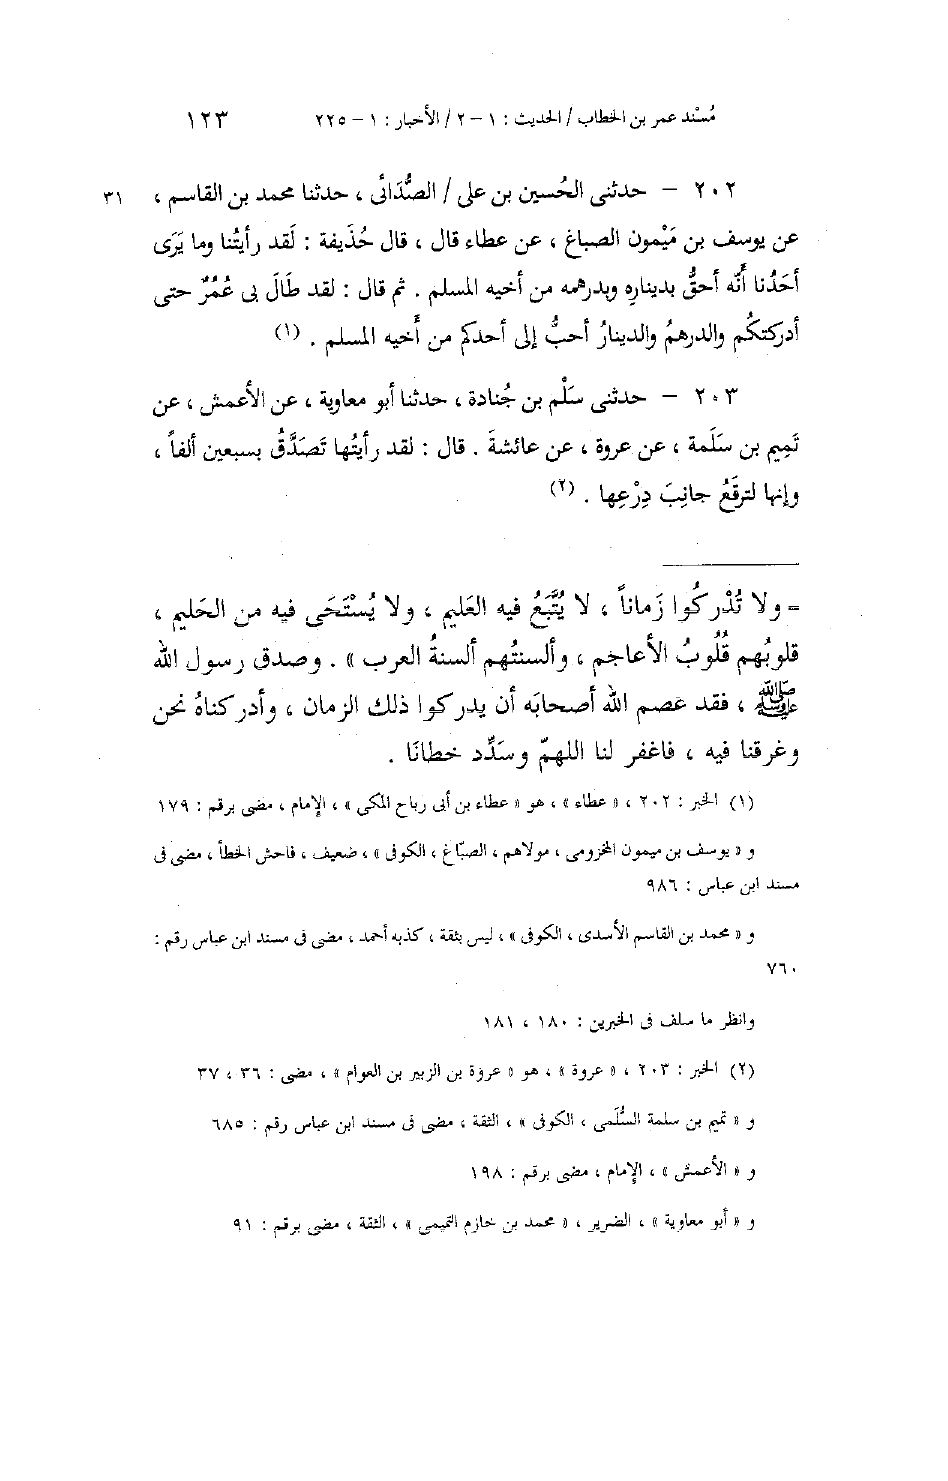 مُسْند عمر بن الخطاب / الحديث : ١ - ٢ / الأخبار : ١ - ٢٢٥ ١٢٣
٢٠٢ - حدثنى الحُسين بن على / الصُّدَائى ، حدثنا محمد بن القاسم ، ٣١
عن يوسف بن مَيْمون الصباغ ، عن عطاء قال ، قال حُذَيفة : لَقد رأيتُنا وما يَرَى
أحَدُنا أنَّه أحقُّ بدينارِه وبدرهمه من أخيه المسلم . ثم قال : لقد طَالَ بى عُمُرٌ حتى
أدركتكُم والدرهمُ والدينارُ أحبُّ إلى أحدكم من أَخيه المسلم . (١)
٢٠٣ - حدثنى سَلْم بن جُنادة ، حدثنا أبو معاوية ، عن الأعمش ، عن
تَمِيم بن سَلَمة ، عن عروة ، عن عائشةَ . قال : لقد رأيتُها تَصَدَّقُ بسبعين ألفاً ،
وإنها لترقَعُ جانِبَ دِرْعِها . (٢)
= ولا تُدْركُوا زَماناً ، لا يُتَّبَعُ فيه العَليم ، ولا يُسْتَحَى فيه من الحَليم ،
قلوبُهم قُلُوبُ الأعاجم ، وألسنتُهم ألسنةُ العرب » . وصدق رسول الله
ﷺ ، فقد عصم الله أصحابَه أن يدركوا ذلك الزمان ، وأدركناهُ نحن
وغرقنا فيه ، فاغفر لنا اللهمّ وسَدِّد خطانَا .
(١) الخبر : ٢٠٢ ، « عطاء » ، هو « عطاء بن أبى رباح المكى » ، الإمام ، مضى برقم : ١٧٩
و « يوسف بن ميمون المخزومى ، مولاهم ، الصبّاغ ، الكوفى » ، ضعيف ، فاحش الخطأ ، مضى فى
مسند ابن عباس : ٩٨٦
و « محمد بن القاسم الأسدى ، الكوفى » ، ليس بثقة ، كذبه أحمد ، مضى فى مسند ابن عباس رقم :
٧٦٠
وانظر ما سلف فى الخبرين : ١٨٠ ، ١٨١
(٢) الخبر : ٢٠٣ ، « عروة » ، هو « عروة بن الزبير بن العوام » ، مضى : ٣٦ ، ٣٧
و « تميم بن سلمة السُّلَمى ، الكوفى » ، الثقة ، مضى فى مسند ابن عباس رقم : ٦٨٥
و « الأعمش » ، الإمام ، مضى برقم : ١٩٨
و « أبو معاوية » ، الضرير ، « محمد بن خازم التميمى » ، الثقة ، مضى برقم : ٩١